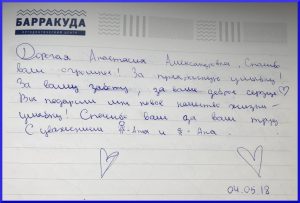 БАРРАКУДА
ортодонтический центр
Дорогая Анастасия Александровна, Спасибо
вам огромное! За прекрасную улыбку!
За вашу заботу, за ваше доброе сердце
Вы подарили мне новое качество жизни –
улыбку! Спасибо вам за ваш труд
С уважением
04.05.18